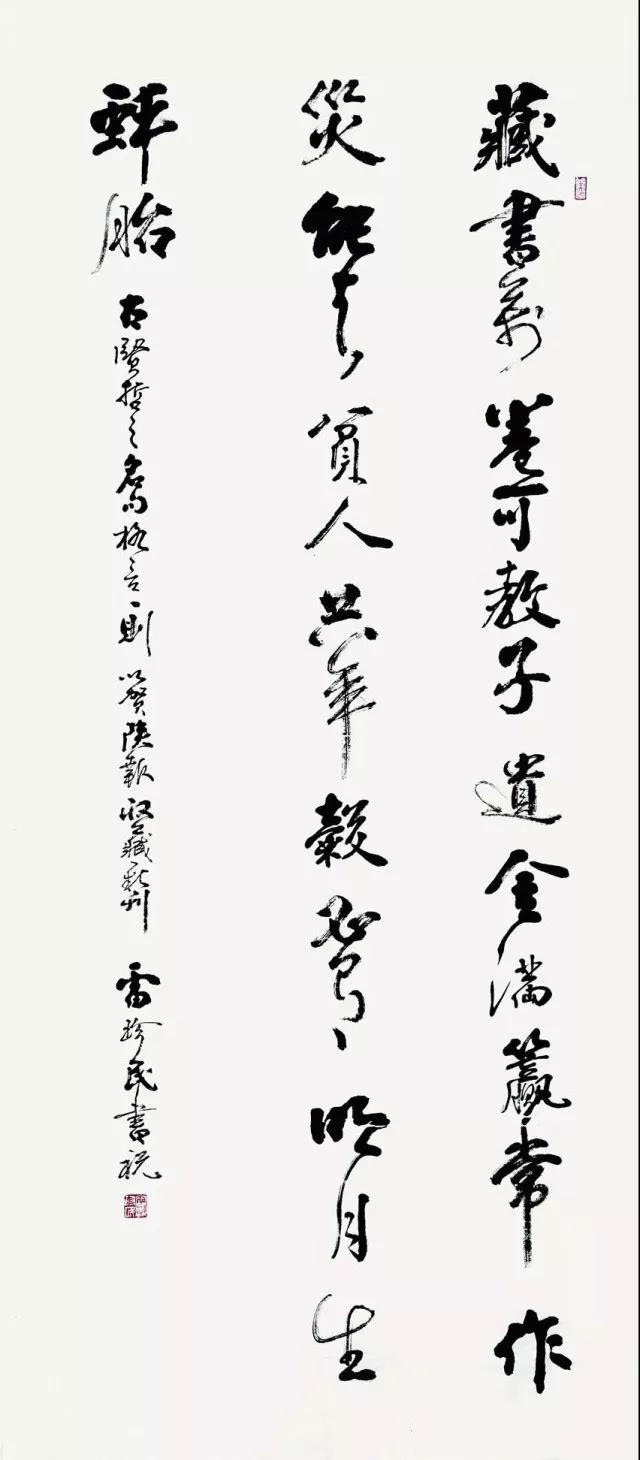 藏書萬卷可教子遺金滿籯常作
災能與貧人共年穀必有明月生
蚌胎
古賢哲之名句格言一則 以賀陝報收藏新刊 雷珍民書祝